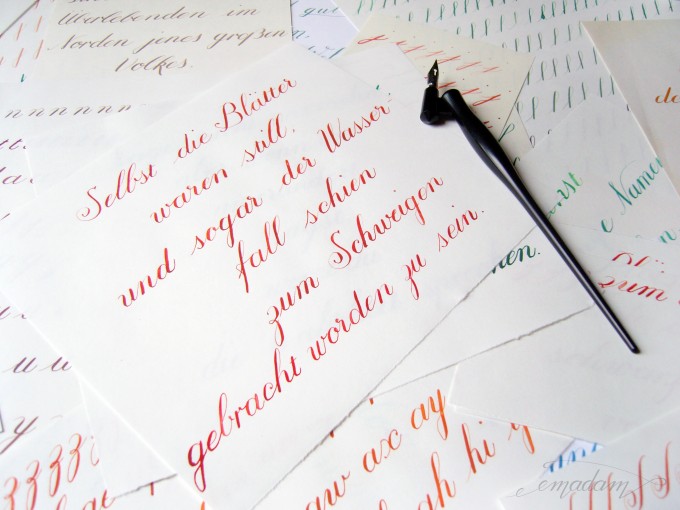 Überlebenden im
Norden jenes großen
Volkes.
Selbst die Blätter
waren still,
und sogar der Wasser-
fall schien
zum Schweigen
gebracht worden zu sein.
nnnnnnn
e Namen
hen.
zum
aw ax ay
ah hi
zzzz
Jemadam